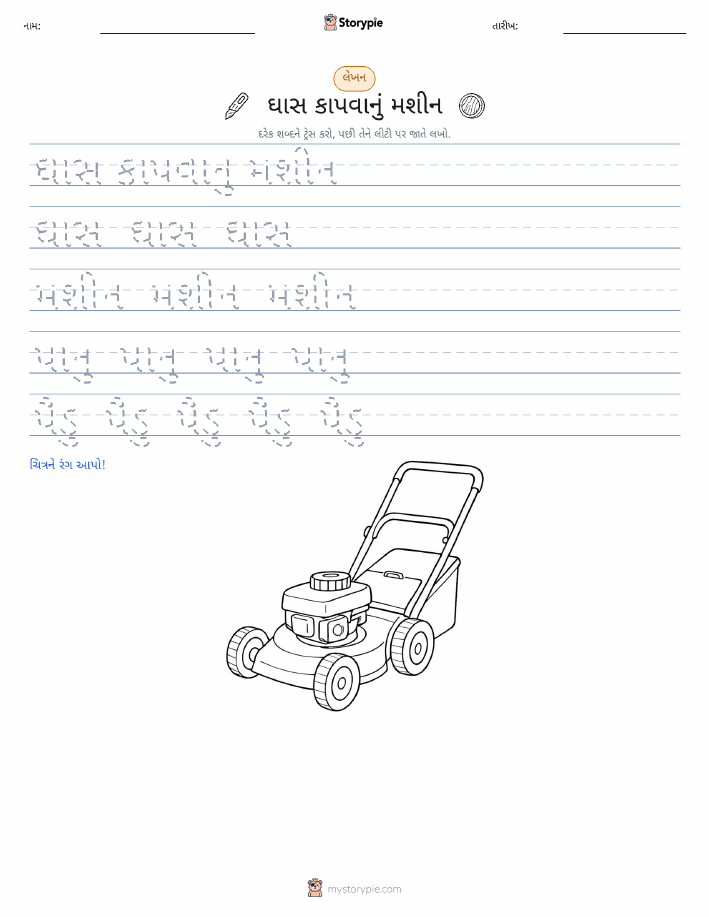 નામ:
Storypie
તારીખ:
લેખન
ઘાસ કાપવાનું મશીન
દરેક શબ્દને ટ્રેસ કરો, પછી તેને લીટી પર જાતે લખો.
ઘાસ કાપવાનુ મશીન
ઘાસ ઘાસ ઘાસ
મશીન મશીન મશીન
પાનુ પાનુ પાનુ પાનુ
પૈડુ પૈડુ પૈડુ પૈડુ પૈડુ
ચિત્રને રંગ આપો!
mystorypie.com